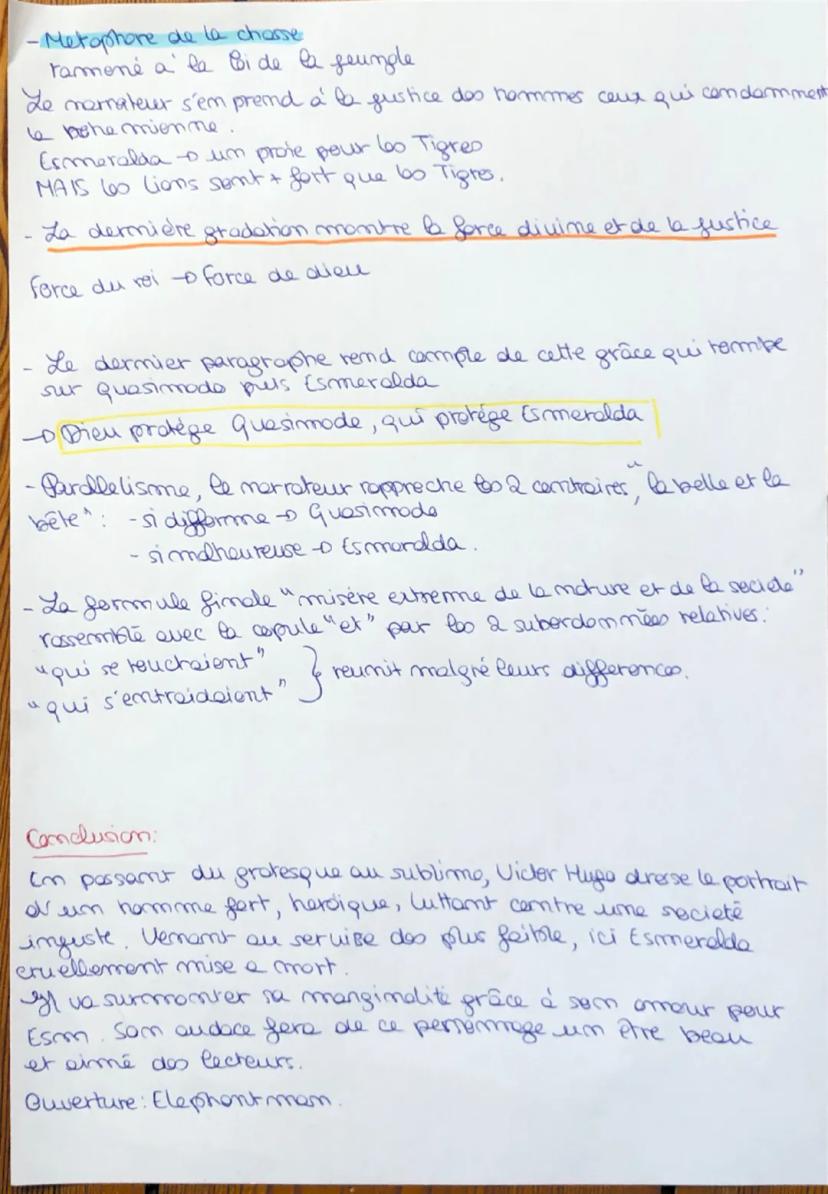 - Metaphore de la chasse
ramené a' la loi de la jeungle
Le narrateur s'em prend à la justice des hommes ceux qui condamment
la bohemienne.
Esmeralda → un proie pour les Tigres
MAIS les lions sont + fort que les Tigres.
- La dernière gradation montre la force divine et de la justice
force du roi → force de dieu
- Le dernier paragraphe rend compte de cette grâce qui tombe
sur Quasimodo puis Esmeralda
→ Dieu protége Quasimodo, qui protége Esmeralda
- Parallelisme, le narrateur rapproche les 2 contraires, "la belle et la
bête" : - si difforme → Quasimodo
- si malheureuse → Esmeralda.
- La formule finale "misére extreme de la nature et de la societé"
rassemblé avec la copule "et" par les 2 subordonnées relatives :
"qui se touchaient" } reunit malgré leurs differences.
"qui s'entraidaient"
Conclusion:
En passant du grotesque au sublime, Victor Hugo dresse le portrait
d'un homme fort, heroïque, luttant contre une societé
injuste. Venant au service des plus faible, ici Esmeralda
cruellement mise a mort.
Il va surmonter sa marginalité grâce à son amour pour
Esm. Son audace fera de ce personnage un être beau
et aimé des lecteurs.
Ouverture : Elephant man.